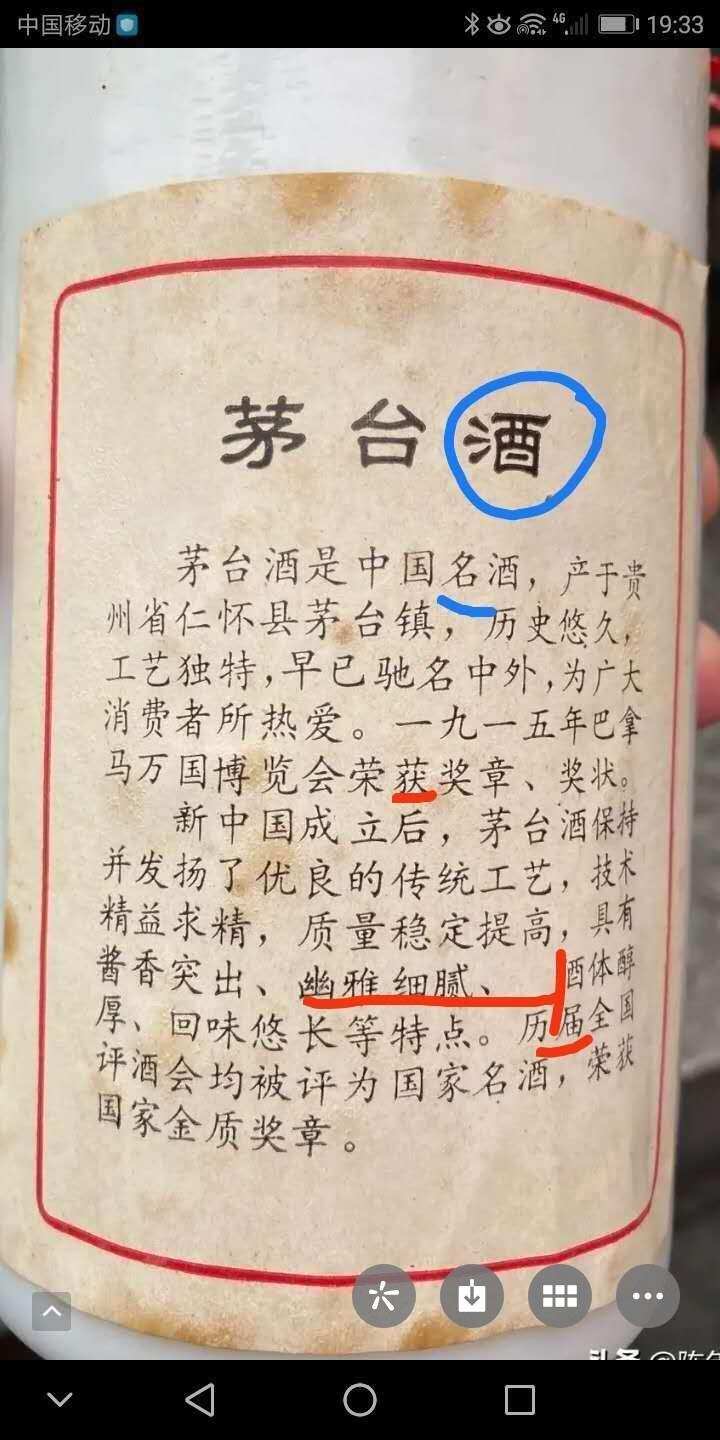 中国移动
4G
19:33
茅台酒
茅台酒是中国名酒，产于贵
州省仁怀县茅台镇，历史悠久，
工艺独特，早已驰名中外，为广大
消费者所热爱。一九一五年巴拿
马万国博览会荣获奖章、奖状。
新中国成立后，茅台酒保持
并发扬了优良的传统工艺，技术
精益求精，质量稳定提高，具有
酱香突出、幽雅细腻、酒体醇
厚、回味悠长等特点。历届全国
评酒会均被评为国家名酒，荣获
国家金质奖章。